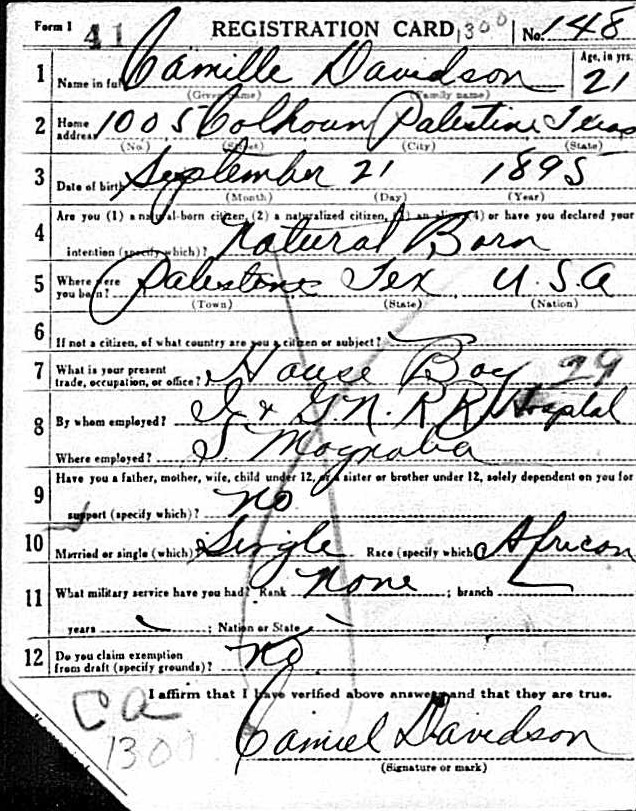 Form 1 41 REGISTRATION CARD 1300 No. 148
1 Name in full Camille Davidson Age, in yrs. 21
(Given name) (Family name)
2 Home address 1005 Calhoun Palestine Texas
(No.) (Street) (City) (State)
3 Date of birth September 21 1895
(Month) (Day) (Year)
4 Are you (1) a natural-born citizen, (2) a naturalized citizen, (3) an alien, (4) or have you declared your
intention (specify which)? Natural Born
5 Where were you born? Palestine Tex U.S.A
(Town) (State) (Nation)
6 If not a citizen, of what country are you a citizen or subject?
7 What is your present trade, occupation, or office? House Boy 29
8 By whom employed? I & G N. R R Hospital
Where employed? S Magnolia
9 Have you a father, mother, wife, child under 12, or a sister or brother under 12, solely dependent on you for
support (specify which)? No
10 Married or single (which)? Single Race (specify which) African
11 What military service have you had? Rank None ; branch
years ; Nation or State
12 Do you claim exemption from draft (specify grounds)? No
I affirm that I have verified above answers and that they are true.
Camiel Davidson
(Signature or mark)
Ca
130